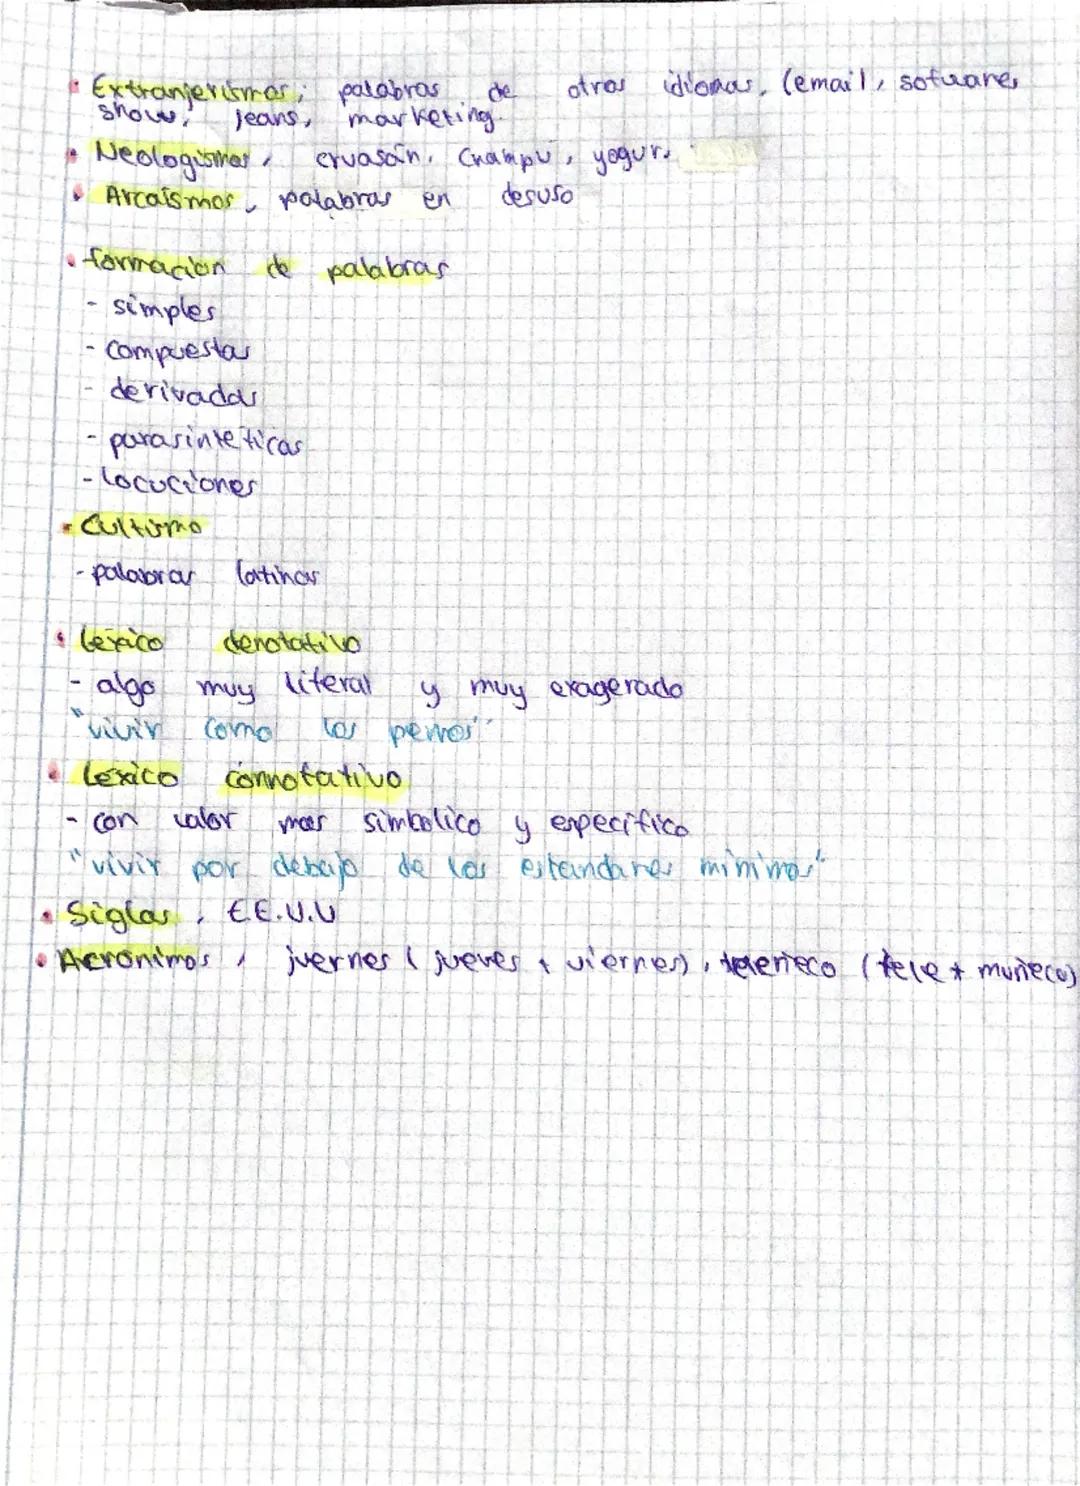 Extranjerismos; palabras de otros idiomas, (email, sofwares
show, jeans, marketing.
Neologismos, cruasán, Champú, yogur.
Arcaísmos, palabras en desuso
formacion de palabras
- simples
- compuestas
- derivadas
- parasinteticas
- locuciones
Cultismo
- palabras latinas
léxico denotativo
- algo muy literal y muy exagerado
"vivir como los perros"
léxico connotativo
- con valor mas simbolico y especifico
"vivir por debajo de los estandares minimos"
Siglas, E.E.U.U
Acronimos, juernes (jueves + viernes), teleñeco (tele + muñeco)